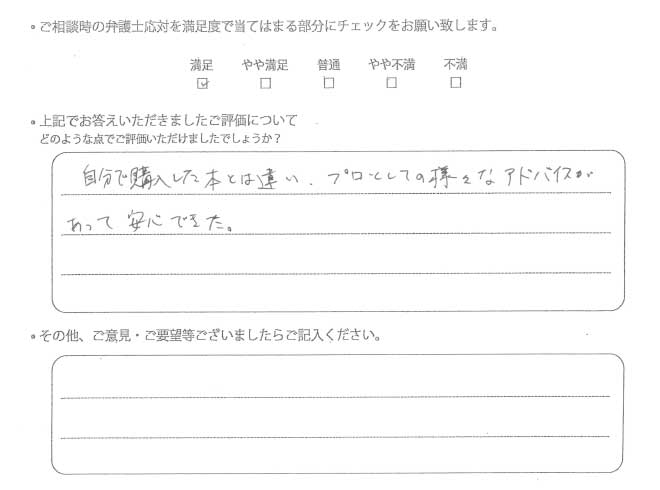 •ご相談時の弁護士応対を満足度で当てはまる部分にチェックをお願い致します。
満足 やや満足 普通 やや不満 不満
•上記でお答えいただきましたご評価について
どのような点でご評価いただけましたでしょうか？
自分で購入した本とは違い、プロとしての様々なアドバイスが
あって安心できた。
•その他、ご意見・ご要望等ございましたらご記入ください。